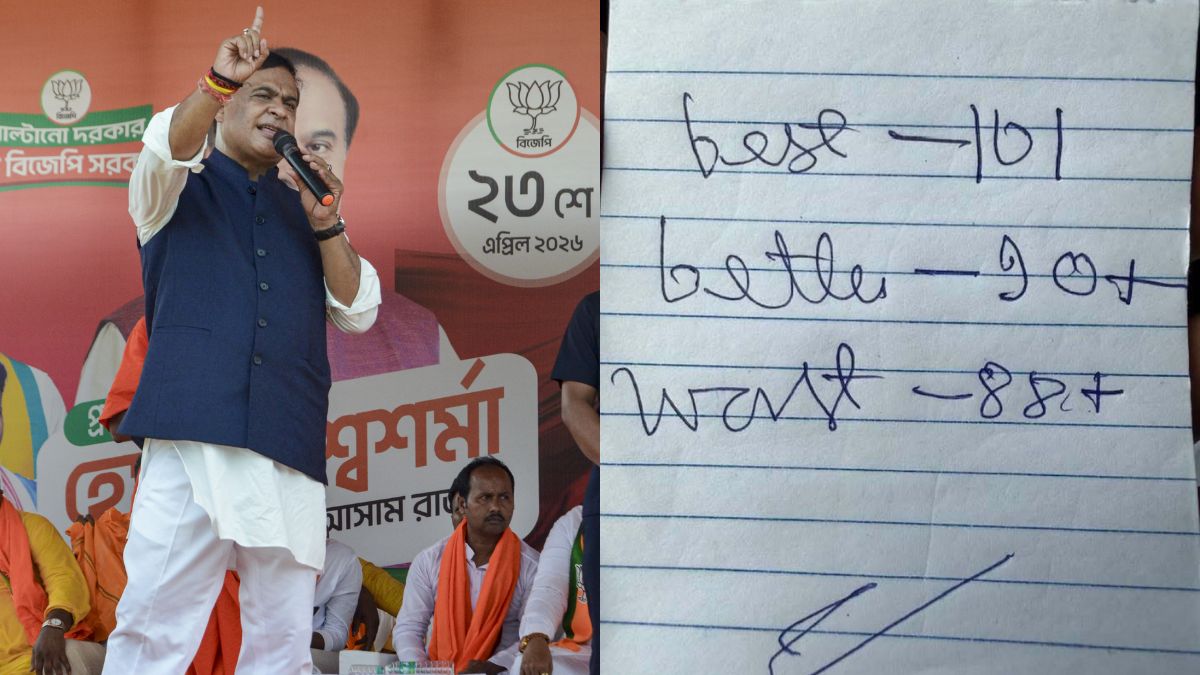 বিজেপি
পাল্টানো দরকার
বিজেপি সরকার
বিজেপি
২৩ শে
এপ্রিল ২০২৬
শ্বশর্মা
আসাম
best — 101
better — 90+
worst — 88+